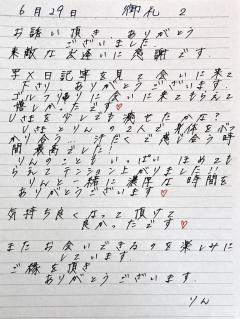 6月29日 御礼 2
お誘い頂き ありがとう
ございました
素敵な お遊いに 感謝です
写メ日記等を見て 会いに来て
下さり ありがとうございます
ゴルフ帰りに会いに来てもらえて
嬉しかったです♥
Uさまを少しでも癒せたかな?
Uさまとりんの2人で 身体を
合う 感じ合う時
間 最高でした
りんのことも いっぱい ほめても
らえて テンション上がりました
りんと一緒に 濃厚な時間を
ありがとうございます♥
気持ち良くなって頂けて
良かったです♥
またお会いできるのを楽しみに
しています
ご縁を頂き
ありがとうございます
りん